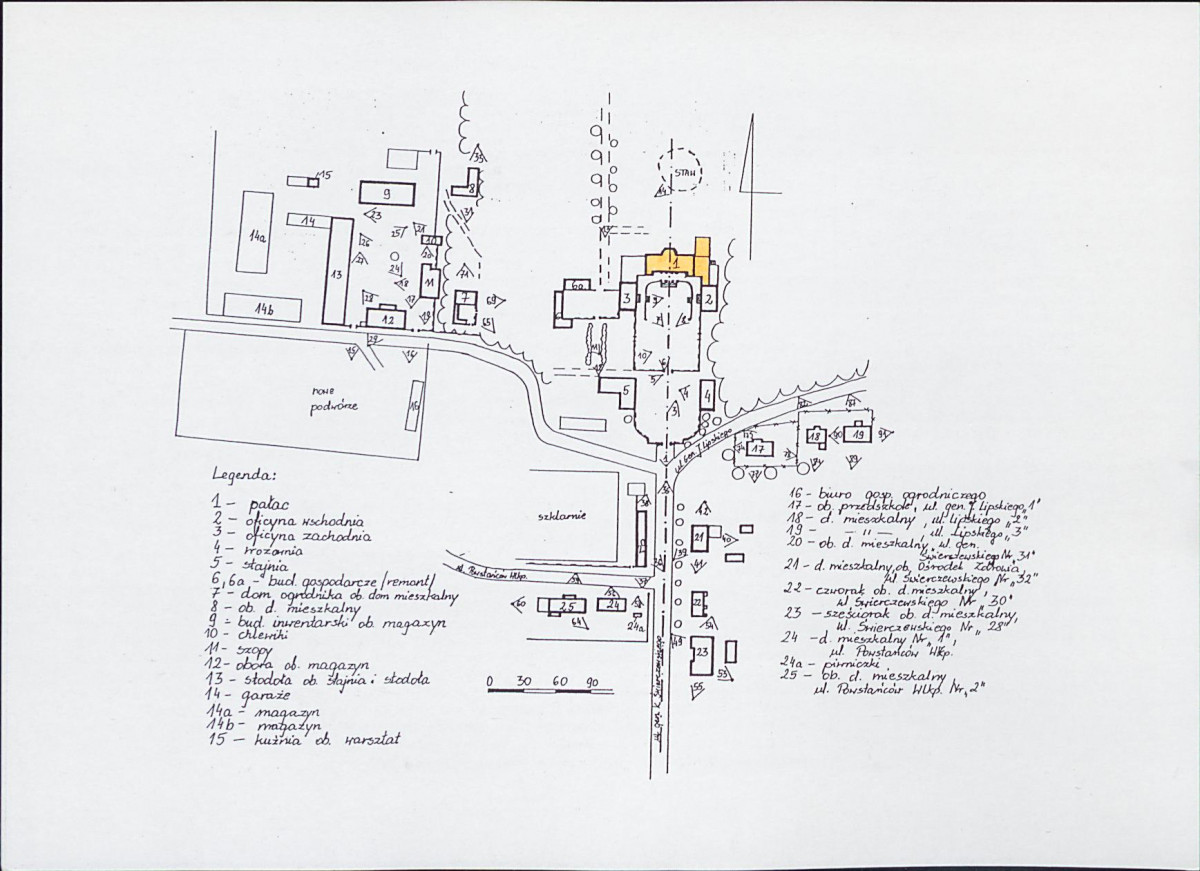 STAW
15
9
8
14
14a
13
10
11
12
14b
7
6a
3
1
2
5
4
16
nowe
podwórze
ul. Gen. J. Lipskiego
17
18
19
szklarnie
ul. Powstańców Wlkp.
25
24
24a
21
22
23
ul. gen. K. Świerczewskiego
0 30 60 90
Legenda:
1 – pałac
2 – oficyna wschodnia
3 – oficyna zachodnia
4 – wozownia
5 – stajnia
6, 6a – bud. gospodarcze /remont/
7 – dom ogrodnika ob. dom mieszkalny
8 – ob. d. mieszkalny
9 – bud. inwentarski ob. magazyn
10 – chlewiki
11 – szopy
12 – obora ob. magazyn
13 – stodoła ob. stajnia i stodoła
14 – garaże
14a – magazyn
14b – magazyn
15 – kuźnia ob. warsztat
16 – biuro gosp. ogrodniczego
17 – ob. przedszkole, ul. gen. J. Lipskiego „1"
18 – d. mieszkalny, ul. Lipskiego „2"
19 – — „ —, ul. Lipskiego „3"
20 – ob. d. mieszkalny, ul. gen.
Świerczewskiego Nr „31"
21 – d. mieszkalny, ob. Ośrodek Zdrowia,
ul. Świerczewskiego Nr „32"
22 – czworak ob. d. mieszkalny,
ul. Świerczewskiego Nr „30"
23 – sześciorak ob. d. mieszkalny,
ul. Świerczewskiego Nr „28"
24 – d. mieszkalny Nr „1",
ul. Powstańców Wlkp.
24a – piwniczki
25 – ob. d. mieszkalny
ul. Powstańców Wlkp. Nr „2"